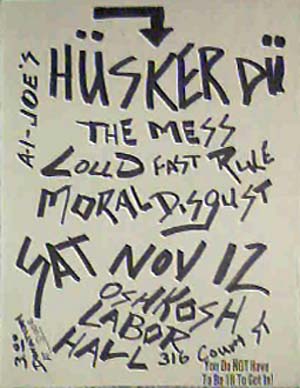 A1-JOE'S
HÜSKER DÜ
THE MESS
LOUD FAST RULE
MORAL DISGUST
SAT NOV 12
OSHKOSH
LABOR
HALL 316 Court
3.00
You Do NOT Have
To Be 18 To Get In!